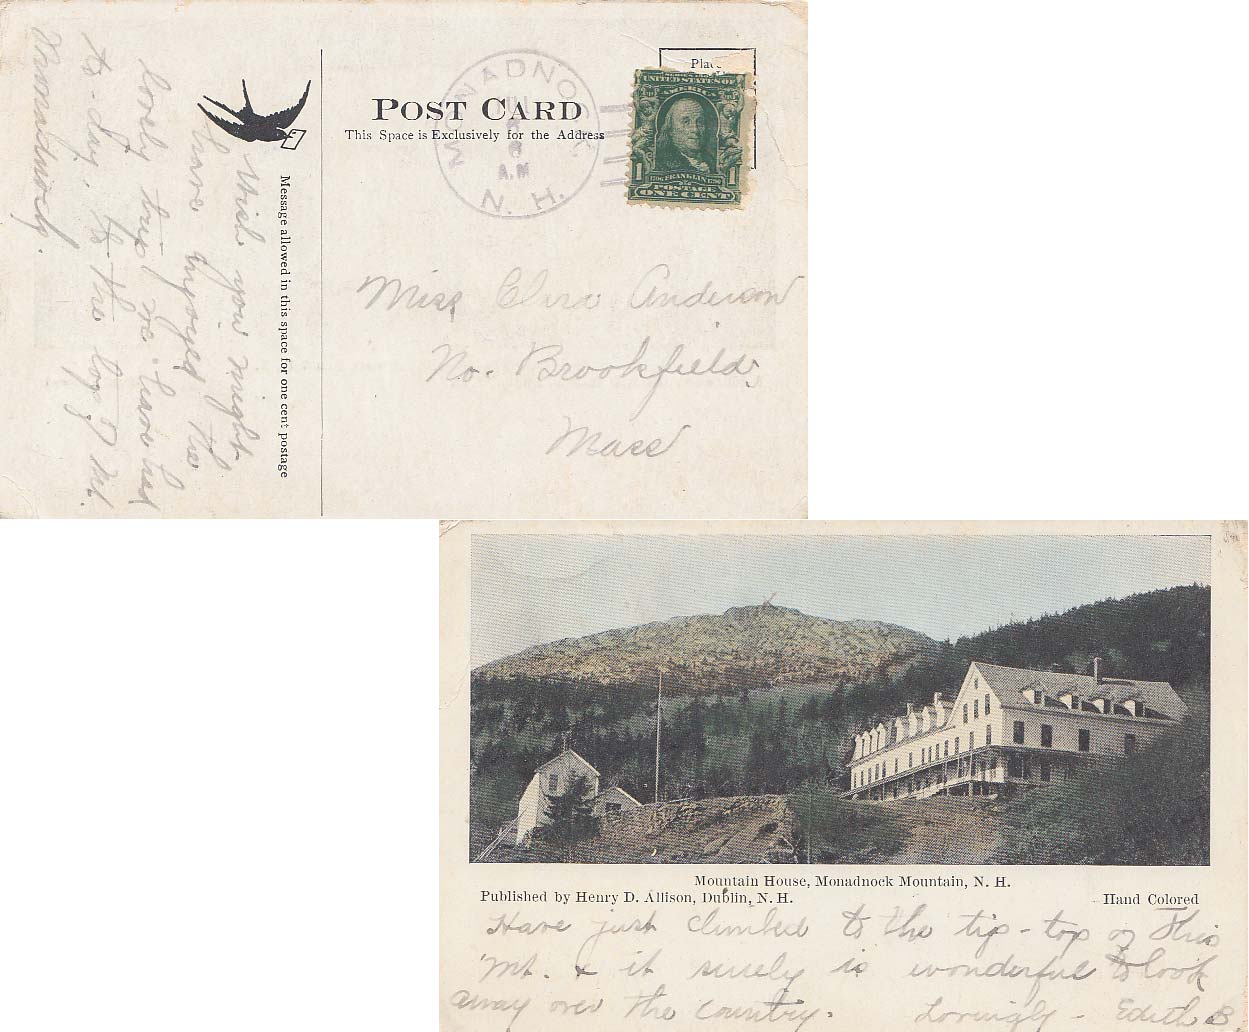 POST CARD
This Space is Exclusively for the Address
Message allowed in this space for one cent postage
Place
UNITED STATES OF
AMERICA
1 1
FRANKLIN
POSTAGE
ONE CENT
MONADNOCK
8
A.M
N. H.
Wish you might
have enjoyed the
lovely trip we have had
to-day, to the top of Mt.
Monadnock.
Miss Clara Anderson
No. Brookfield,
Mass
Mountain House, Monadnock Mountain, N. H.
Published by Henry D. Allison, Dublin, N. H.
Hand Colored
Have just climbed to the tip-top of this
Mt. & it surely is wonderful to look
away over the country.
Lovingly - Edith B